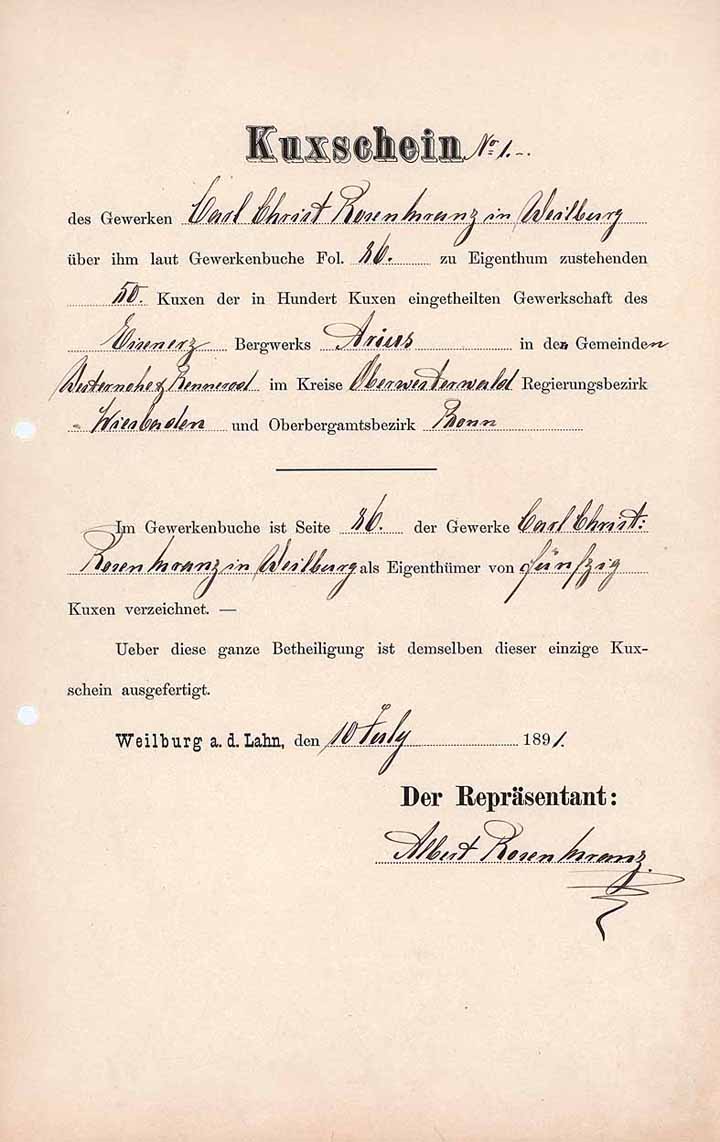 Kuxschein No 1.-.
des Gewerken Carl Christ Rosenkranz in Weilburg
über ihm laut Gewerkenbuche Fol. 36. zu Eigenthum zustehenden
50. Kuxen der in Hundert Kuxen eingetheilten Gewerkschaft des
Eisenerz Bergwerks Arius in den Gemeinden
Westernohe & Rennerod im Kreise Oberwesterwald Regierungsbezirk
Wiesbaden und Oberbergamtsbezirk Bonn
Im Gewerkenbuche ist Seite 36. der Gewerke Carl Christ:
Rosenkranz in Weilburg als Eigenthümer von fünfzig
Kuxen verzeichnet. —
Ueber diese ganze Betheiligung ist demselben dieser einzige Kux-
schein ausgefertigt.
Weilburg a. d. Lahn, den 10 July 1891.
Der Repräsentant:
Albert Rosenkranz.